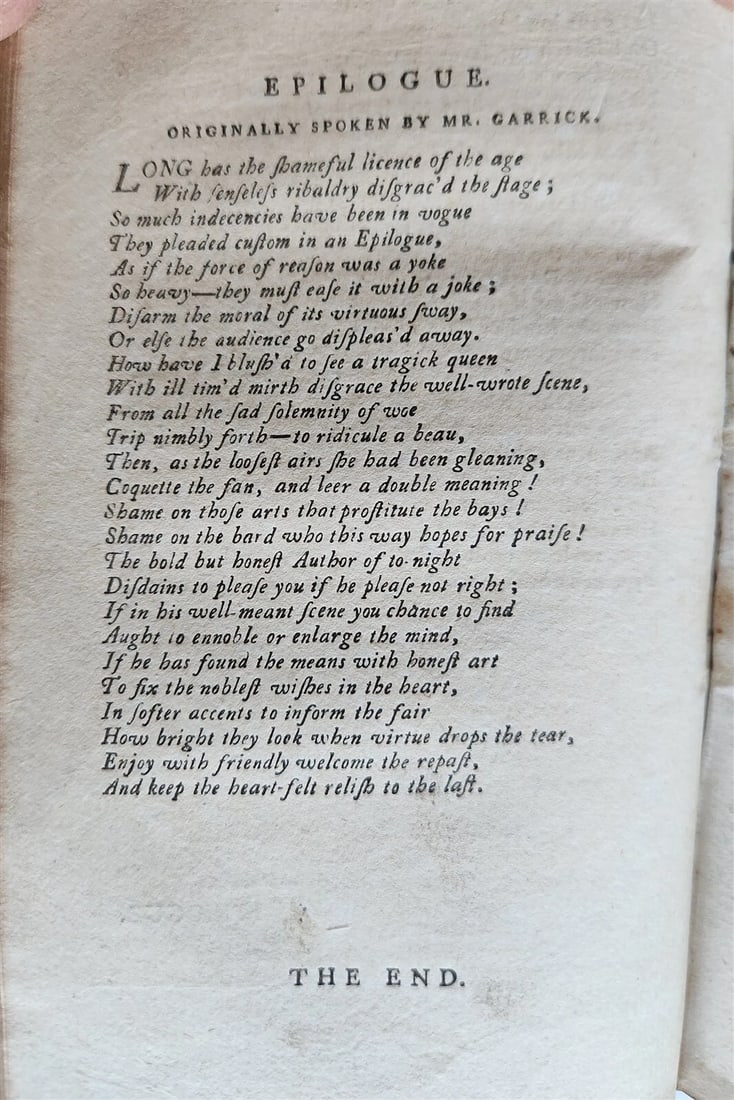 EPILOGUE.
ORIGINALLY SPOKEN BY MR. GARRICK.
LONG has the ſhameful licence of the age
With ſenſeleſs ribaldry diſgrac'd the ſtage ;
So much indecencies have been in vogue
They pleaded cuſtom in an Epilogue,
As if the force of reaſon was a yoke
So heavy—they muſt eaſe it with a joke ;
Diſarm the moral of its virtuous ſway,
Or elſe the audience go diſpleas'd away.
How have I bluſh'd to ſee a tragick queen
With ill tim'd mirth diſgrace the well-wrote ſcene,
From all the ſad ſolemnity of woe
Trip nimbly forth—to ridicule a beau,
Then, as the looſeſt airs ſhe had been gleaning,
Coquette the fan, and leer a double meaning !
Shame on thoſe arts that proſtitute the bays !
Shame on the bard who this way hopes for praiſe !
The bold but honeſt Author of to-night
Diſdains to pleaſe you if he pleaſe not right ;
If in his well-meant ſcene you chance to find
Aught to ennoble or enlarge the mind,
If he has found the means with honeſt art
To fix the nobleſt wiſhes in the heart,
In ſofter accents to inform the fair
How bright they look when virtue drops the tear,
Enjoy with friendly welcome the repaſt,
And keep the heart-felt reliſh to the laſt.
THE END.